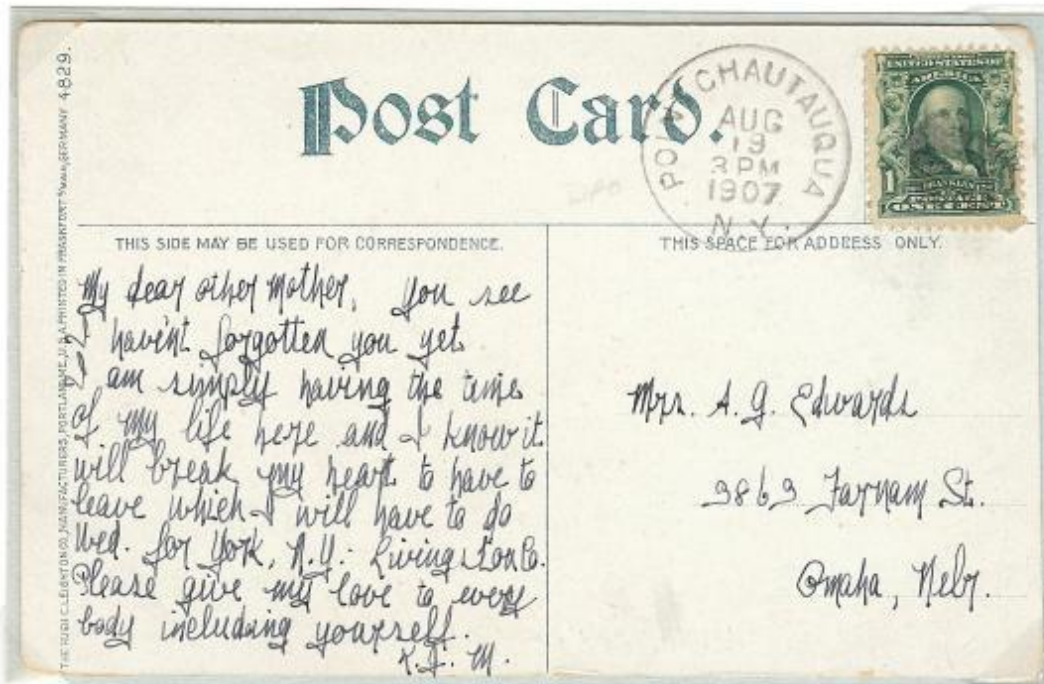 THE HUGH C. LEIGHTON CO., MANUFACTURERS, PORTLAND, ME., U.S.A. PRINTED IN FRANKFORT GERMANY 4829.
Post Card.
CHAUTAUQUA
AUG
19
3 PM
1907
N.Y.
UNITED STATES OF
AMERICA
1
FRANKLIN
POSTAGE
ONE CENT
THIS SIDE MAY BE USED FOR CORRESPONDENCE.
THIS SPACE FOR ADDRESS ONLY.
My dear other Mother, You see
I haven't forgotten you yet
I am simply having the time
of my life here and I know it
will break my heart to have to
leave which I will have to do
Wed. for York, N.Y. Livingston Co.
Please give my love to every
body including yourself.
M.
Mrs. A. G. Edwards
3863 Farnam St.
Omaha, Nebr.